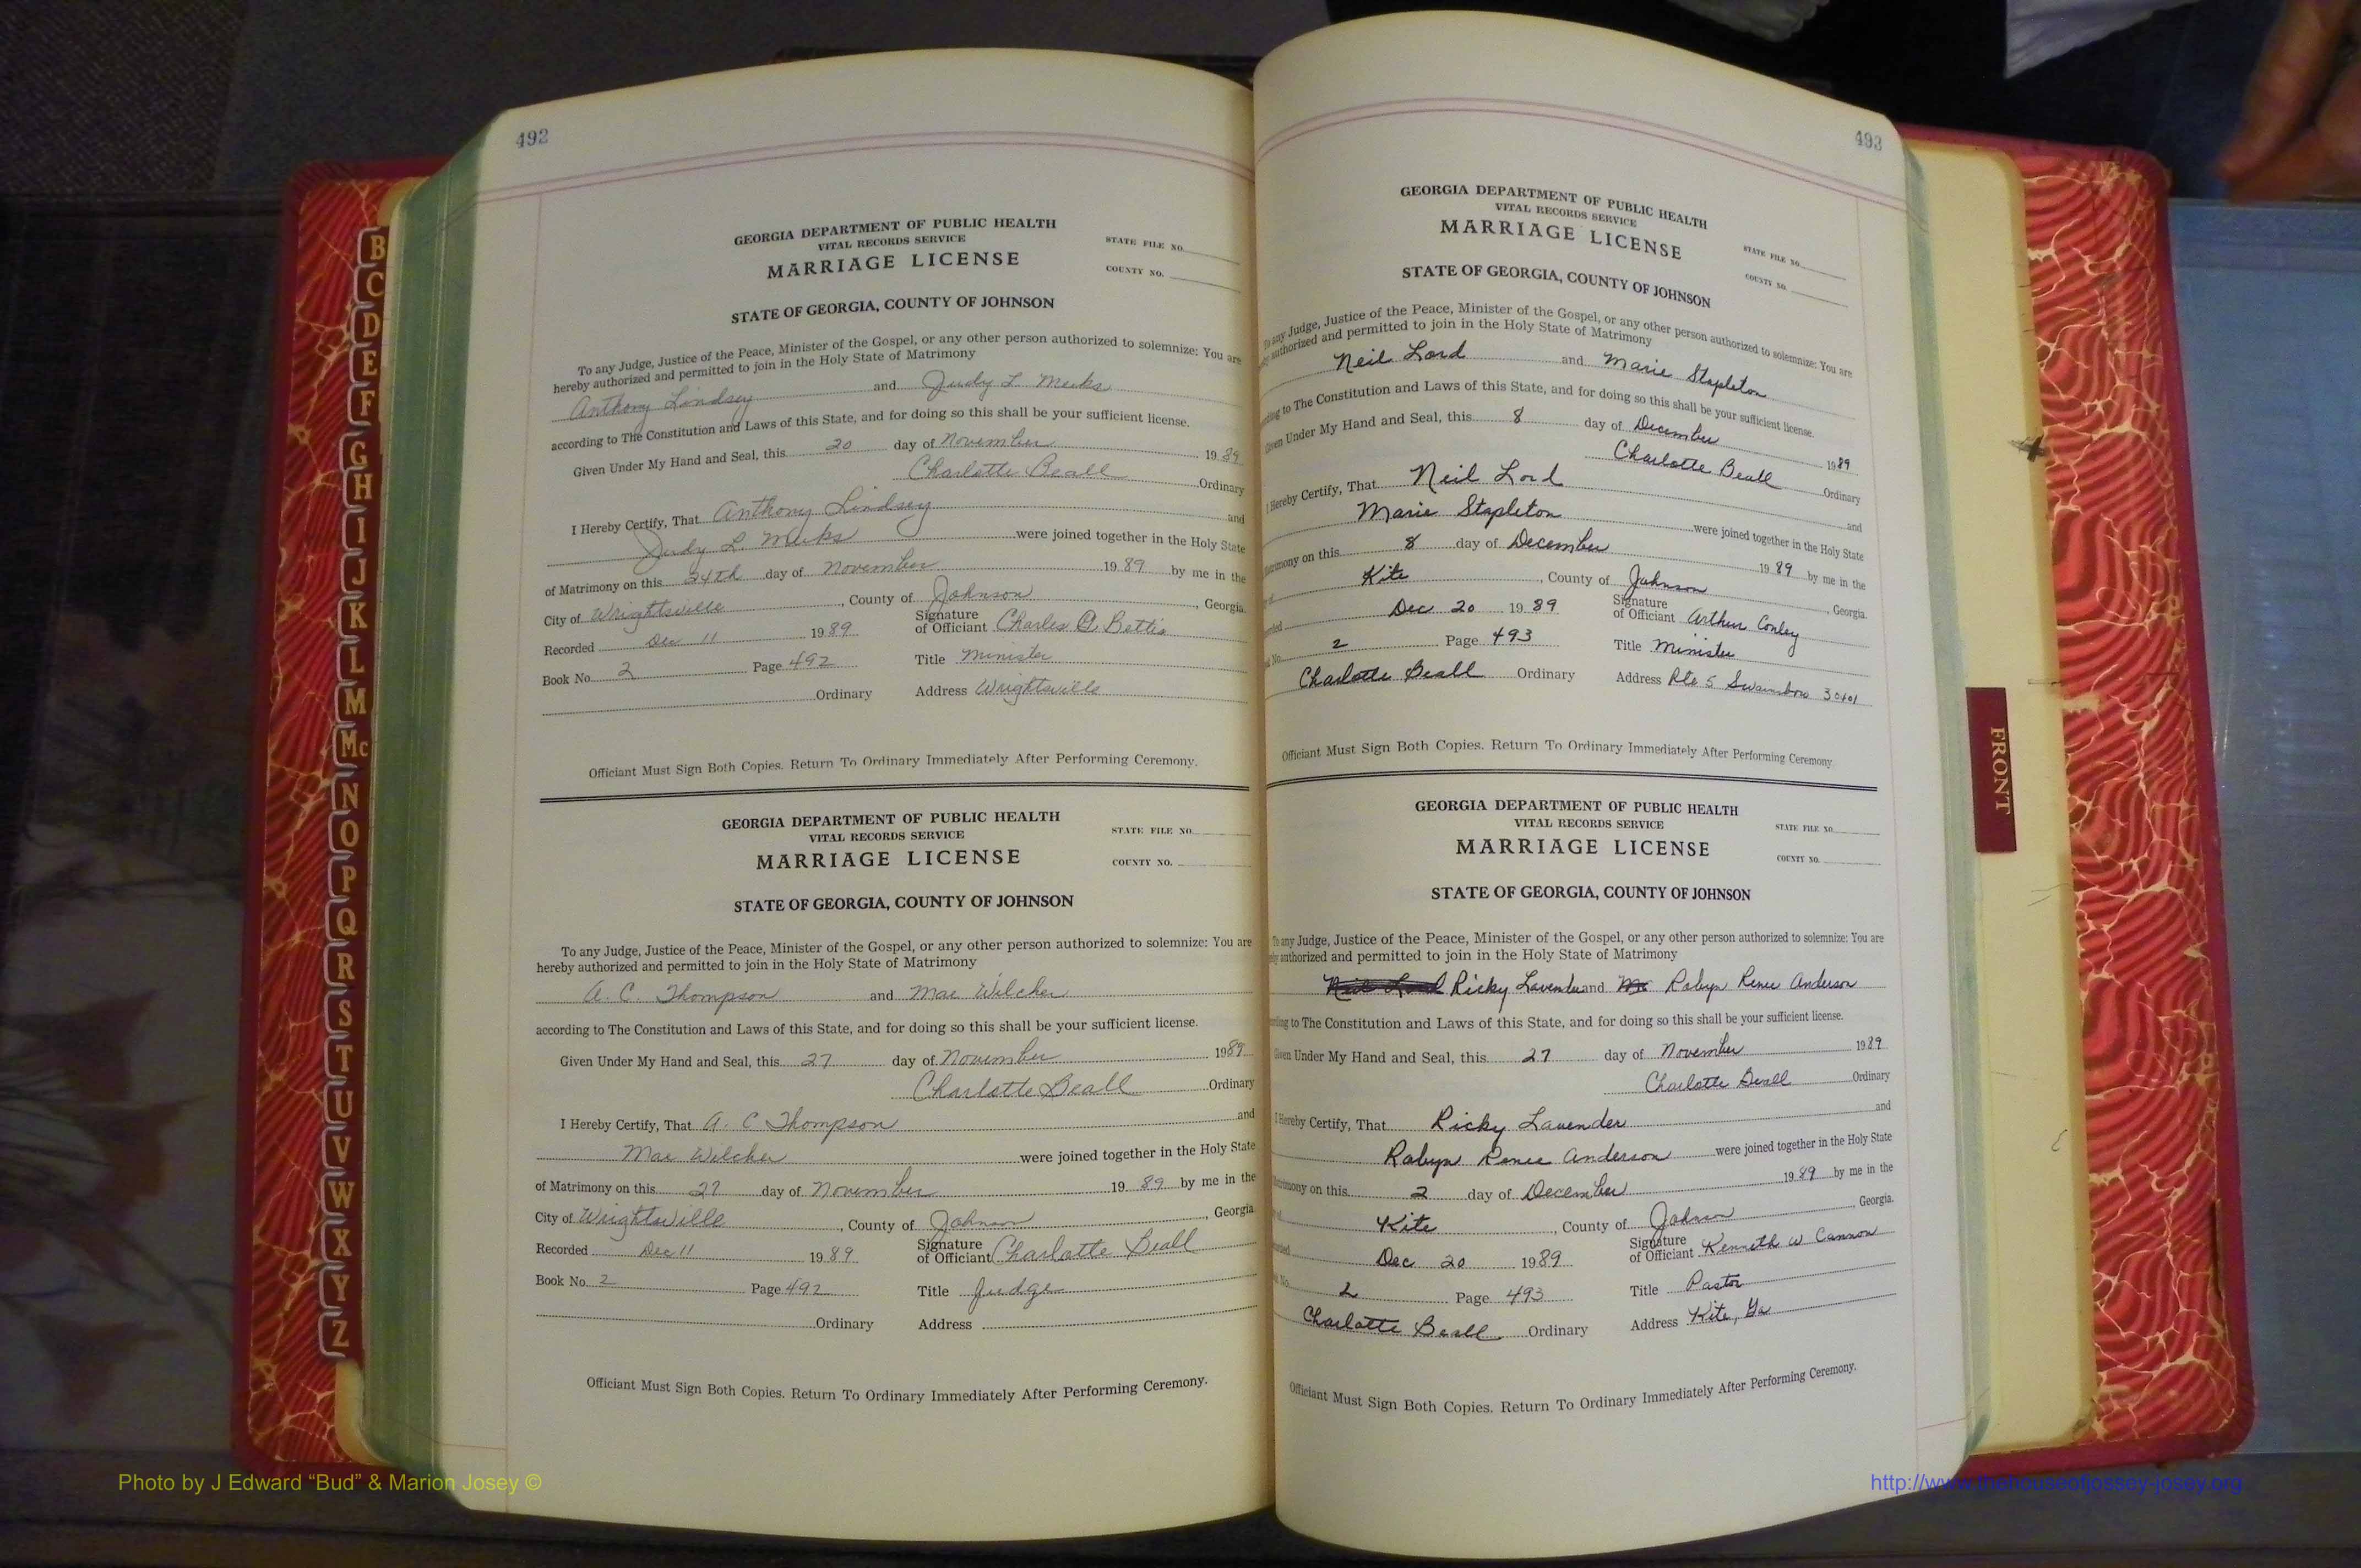 492
GEORGIA DEPARTMENT OF PUBLIC HEALTH
VITAL RECORDS SERVICE
MARRIAGE LICENSE
STATE FILE NO.
COUNTY NO.
STATE OF GEORGIA, COUNTY OF JOHNSON
To any Judge, Justice of the Peace, Minister of the Gospel, or any other person authorized to solemnize: You are
hereby authorized and permitted to join in the Holy State of Matrimony
Anthony Lindsey and Judy L Meeks
according to The Constitution and Laws of this State, and for doing so this shall be your sufficient license.
Given Under My Hand and Seal, this 20 day of November 1989
Charlotte Beall Ordinary
I Hereby Certify, That Anthony Lindsey and
Judy L. Meeks were joined together in the Holy State
of Matrimony on this 24th day of November 1989 by me in the
City of Wrightsville, County of Johnson, Georgia.
Recorded Dec 11 1989 Signature of Officiant Charles Bettis
Book No. 2 Page 492 Title Minister
Ordinary Address Wrightsville
Officiant Must Sign Both Copies. Return To Ordinary Immediately After Performing Ceremony.
GEORGIA DEPARTMENT OF PUBLIC HEALTH
VITAL RECORDS SERVICE
MARRIAGE LICENSE
STATE FILE NO.
COUNTY NO.
STATE OF GEORGIA, COUNTY OF JOHNSON
To any Judge, Justice of the Peace, Minister of the Gospel, or any other person authorized to solemnize: You are
hereby authorized and permitted to join in the Holy State of Matrimony
A. C. Thompson and Mae Wilcher
according to The Constitution and Laws of this State, and for doing so this shall be your sufficient license.
Given Under My Hand and Seal, this 27 day of November 1989
Charlotte Beall Ordinary
I Hereby Certify, That A. C Thompson and
Mae Wilcher were joined together in the Holy State
of Matrimony on this 27 day of November 1989 by me in the
City of Wrightsville, County of Johnson, Georgia.
Recorded Dec 11 1989 Signature of Officiant Charlotte Beall
Book No. 2 Page 492 Title Judge
Ordinary Address
Officiant Must Sign Both Copies. Return To Ordinary Immediately After Performing Ceremony.
493
GEORGIA DEPARTMENT OF PUBLIC HEALTH
VITAL RECORDS SERVICE
MARRIAGE LICENSE
STATE FILE NO.
COUNTY NO.
STATE OF GEORGIA, COUNTY OF JOHNSON
To any Judge, Justice of the Peace, Minister of the Gospel, or any other person authorized to solemnize: You are
authorized and permitted to join in the Holy State of Matrimony
Neil Lord and Marie Stapleton
to The Constitution and Laws of this State, and for doing so this shall be your sufficient license.
Given Under My Hand and Seal, this 8 day of December 1989
Charlotte Beall Ordinary
I Hereby Certify, That Neil Lord and
Marie Stapleton were joined together in the Holy State
on this 8 day of December 1989 by me in the
Kite, County of Johnson, Georgia.
Dec 20 1989 Signature of Officiant Arthur Conley
2 Page 493 Title Minister
Charlotte Beall Ordinary Address Rte 5 Swainsboro 30401
Officiant Must Sign Both Copies. Return To Ordinary Immediately After Performing Ceremony.
GEORGIA DEPARTMENT OF PUBLIC HEALTH
VITAL RECORDS SERVICE
MARRIAGE LICENSE
STATE FILE NO.
COUNTY NO.
STATE OF GEORGIA, COUNTY OF JOHNSON
To any Judge, Justice of the Peace, Minister of the Gospel, or any other person authorized to solemnize: You are
authorized and permitted to join in the Holy State of Matrimony
Neil Lord Ricky Lavender and Robyn Renee Anderson
to The Constitution and Laws of this State, and for doing so this shall be your sufficient license.
Given Under My Hand and Seal, this 27 day of November 1989
Charlotte Beall Ordinary
I Hereby Certify, That Ricky Lavender and
Robyn Renee Anderson were joined together in the Holy State
on this 2 day of December 1989 by me in the
Kite, County of Johnson, Georgia.
Dec 20 1989 Signature of Officiant Kenneth W Cannon
2 Page 493 Title Pastor
Charlotte Beall Ordinary Address Kite, Ga
Officiant Must Sign Both Copies. Return To Ordinary Immediately After Performing Ceremony.
B
C
D
E
F
G
H
I
J
K
L
M
Mc
N
O
P
Q
R
S
T
U
V
W
X
Y
Z
FRONT
Photo by J Edward “Bud” & Marion Josey ©
http://www.thehouseofjossey-josey.org